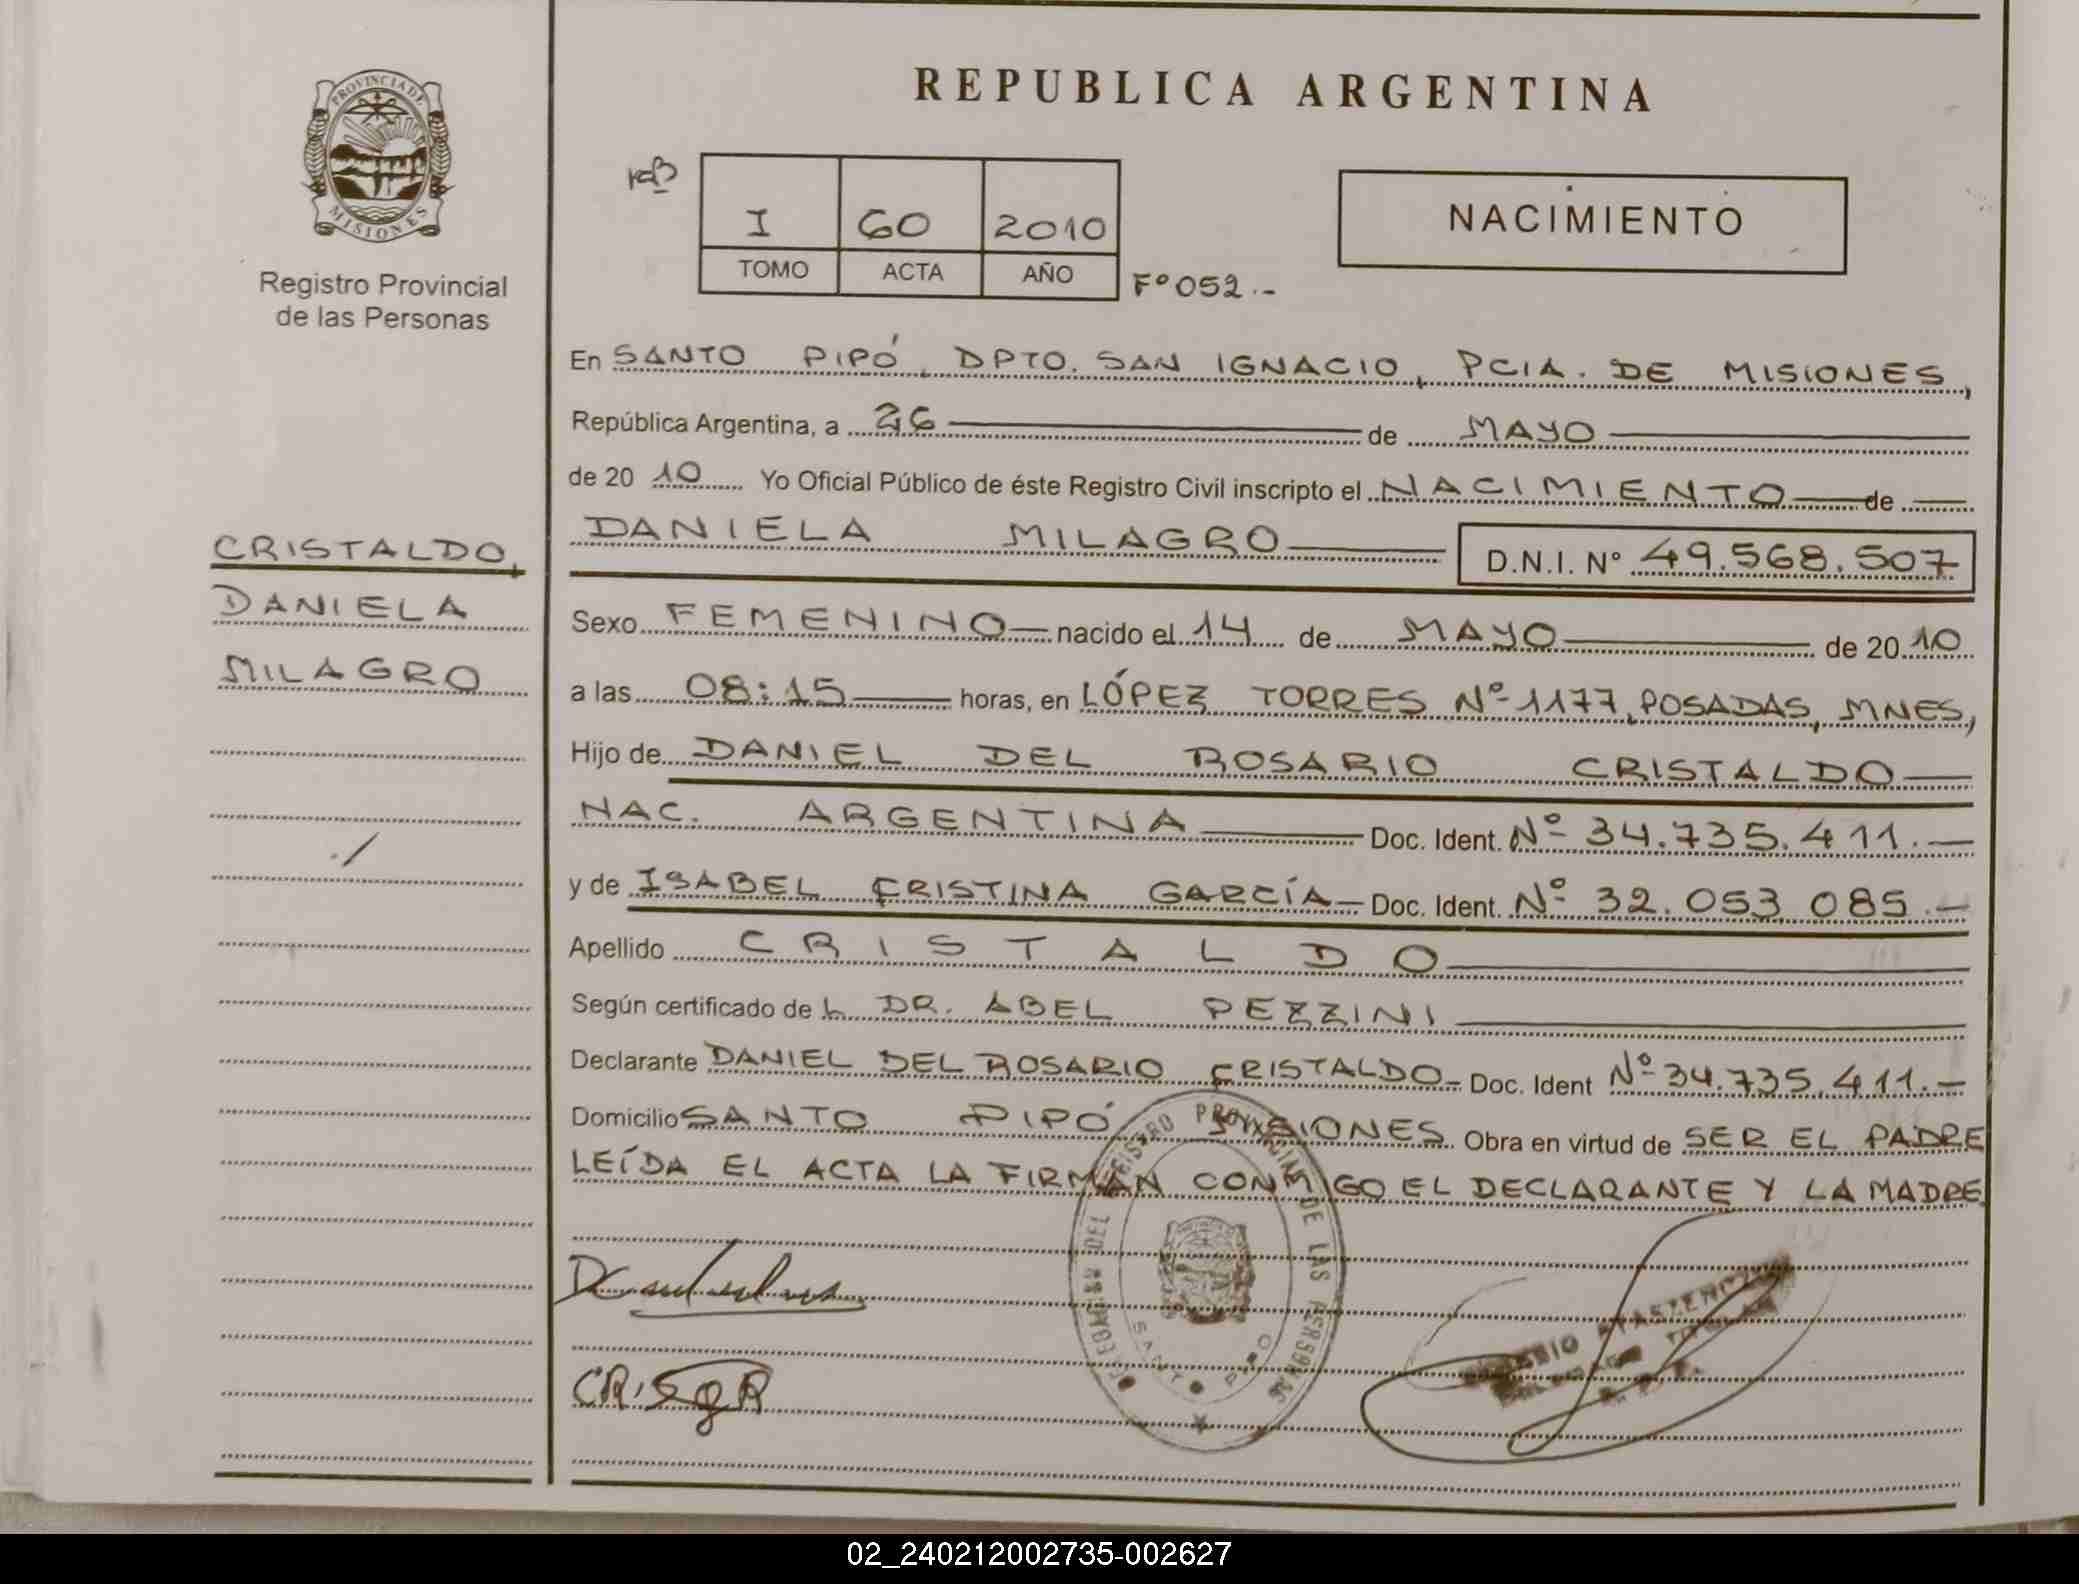 REPUBLICA ARGENTINA
PROVINCIA DE
MISIONES
Registro Provincial
de las Personas
I 60 2010
TOMO ACTA AÑO
Fº 052.-
NACIMIENTO
En SANTO PIPÓ, DPTO. SAN IGNACIO, PCIA. DE MISIONES,
República Argentina, a 26 de MAYO
de 20 10 Yo Oficial Público de éste Registro Civil inscripto el NACIMIENTO de
DANIELA MILAGRO D.N.I. Nº 49.568.507
CRISTALDO,
DANIELA
MILAGRO
Sexo FEMENINO nacido el 14 de MAYO de 20 10
a las 08:15 horas, en LÓPEZ TORRES Nº 1177, POSADAS, MNES,
Hijo de DANIEL DEL ROSARIO CRISTALDO
NAC. ARGENTINA Doc. Ident. Nº 34.735.411.-
y de ISABEL CRISTINA GARCÍA Doc. Ident. Nº 32.053.085.-
Apellido CRISTALDO
Según certificado de L DR. ABEL PEZZINI
Declarante DANIEL DEL ROSARIO CRISTALDO Doc. Ident Nº 34.735.411.-
Domicilio SANTO PIPÓ MISIONES Obra en virtud de SER EL PADRE
LEÍDA EL ACTA LA FIRMAN CONMIGO EL DECLARANTE Y LA MADRE.
REGISTRO PROVINCIAL DE LAS PERSONAS
SANTO PIPO
02_240212002735-002627